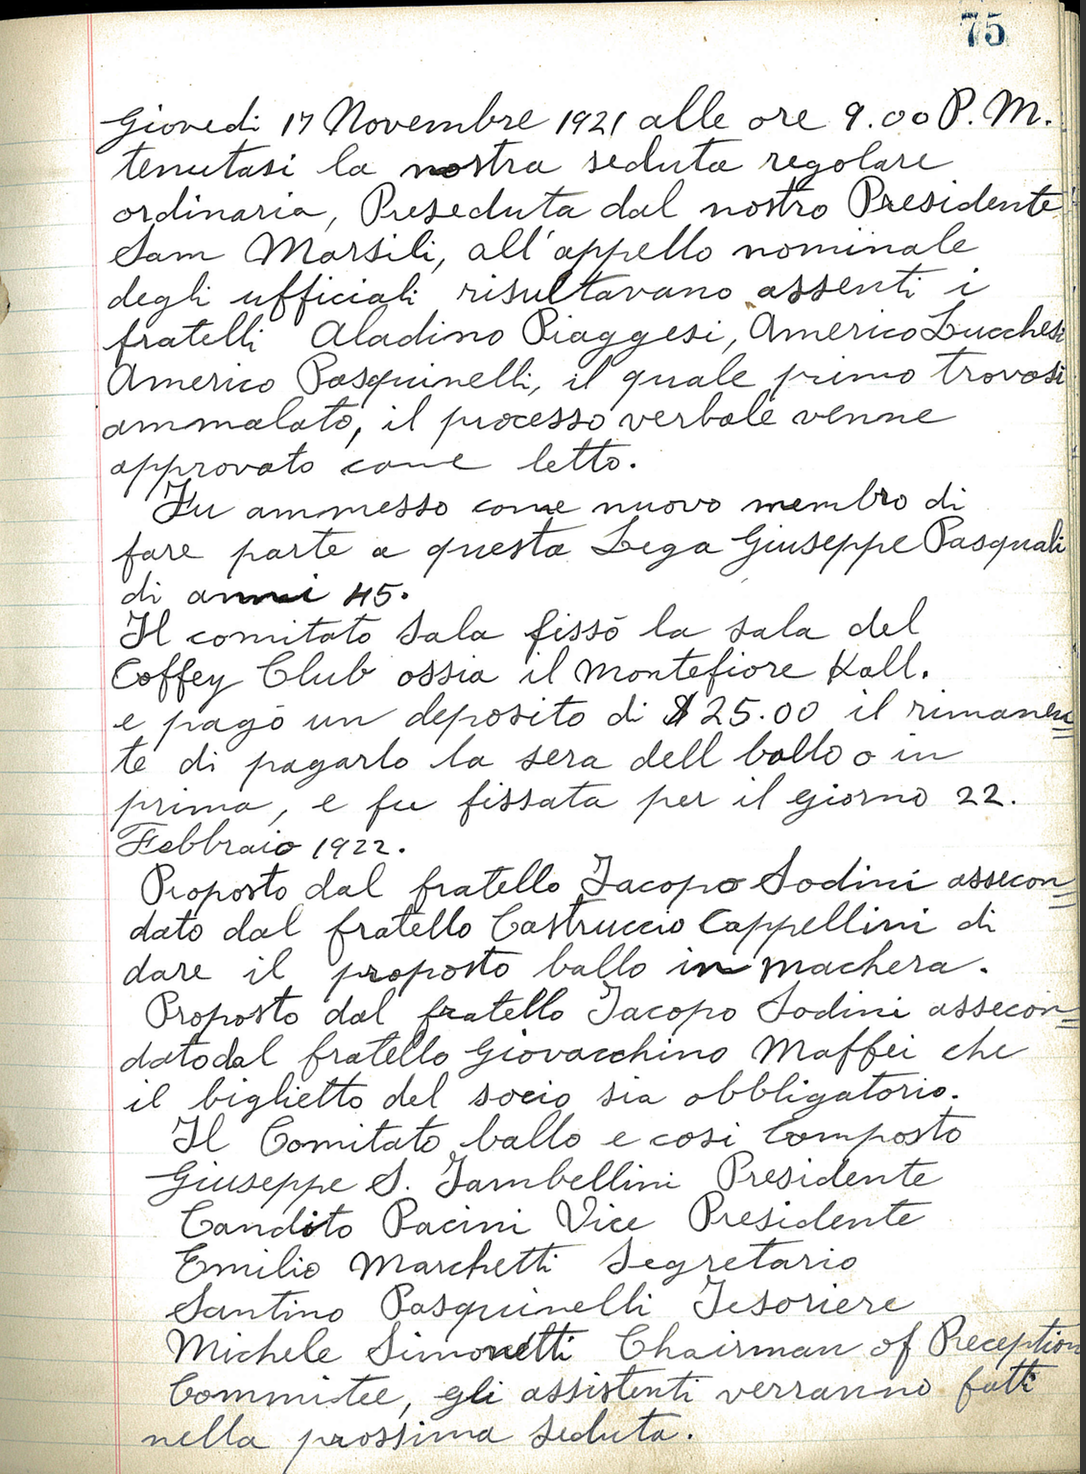 75
Giovedi 17 Novembre 1921 alle ore 9.00 P.M.
tenutasi la nostra seduta regolare
ordinaria, Preseduta dal nostro Presidente
Sam Marsili, all'appello nominale
degli ufficiali risultavano assenti i
fratelli Aladino Piaggesi, Americo Lucchesi
Americo Pasquinelli, il quale primo trovasi
ammalato, il processo verbale venne
approvato come letto.
Fu ammesso come nuovo membro di
fare parte a questa Lega Giuseppe Pasquali
di anni 45.
Il comitato Sala fissò la sala del
Coffey Club ossia il Montefiore Hall.
e pagò un deposito di $25.00 il rimanen=
te di pagarlo la sera dell ballo o in
prima, e fu fissata per il giorno 22.
Febbraio 1922.
Proposto dal fratello Jacopo Sodini assecon=
dato dal fratello Castruccio Cappellini di
dare il proposto ballo in machera.
Proposto dal fratello Jacopo Sodini assecon=
dato dal fratello Giovacchino Maffei che
il biglietto del socio sia obbligatorio.
Il Comitato ballo e cosi Composto
Giuseppe S. Tambellini Presidente
Candito Pacini Vice Presidente
Emilio Marchetti Segretario
Santino Pasquinelli Tesoriere
Michele Simonetti Chairman of Preception
Commistee, gli assistenti verranno fatti
nella prossima seduta.